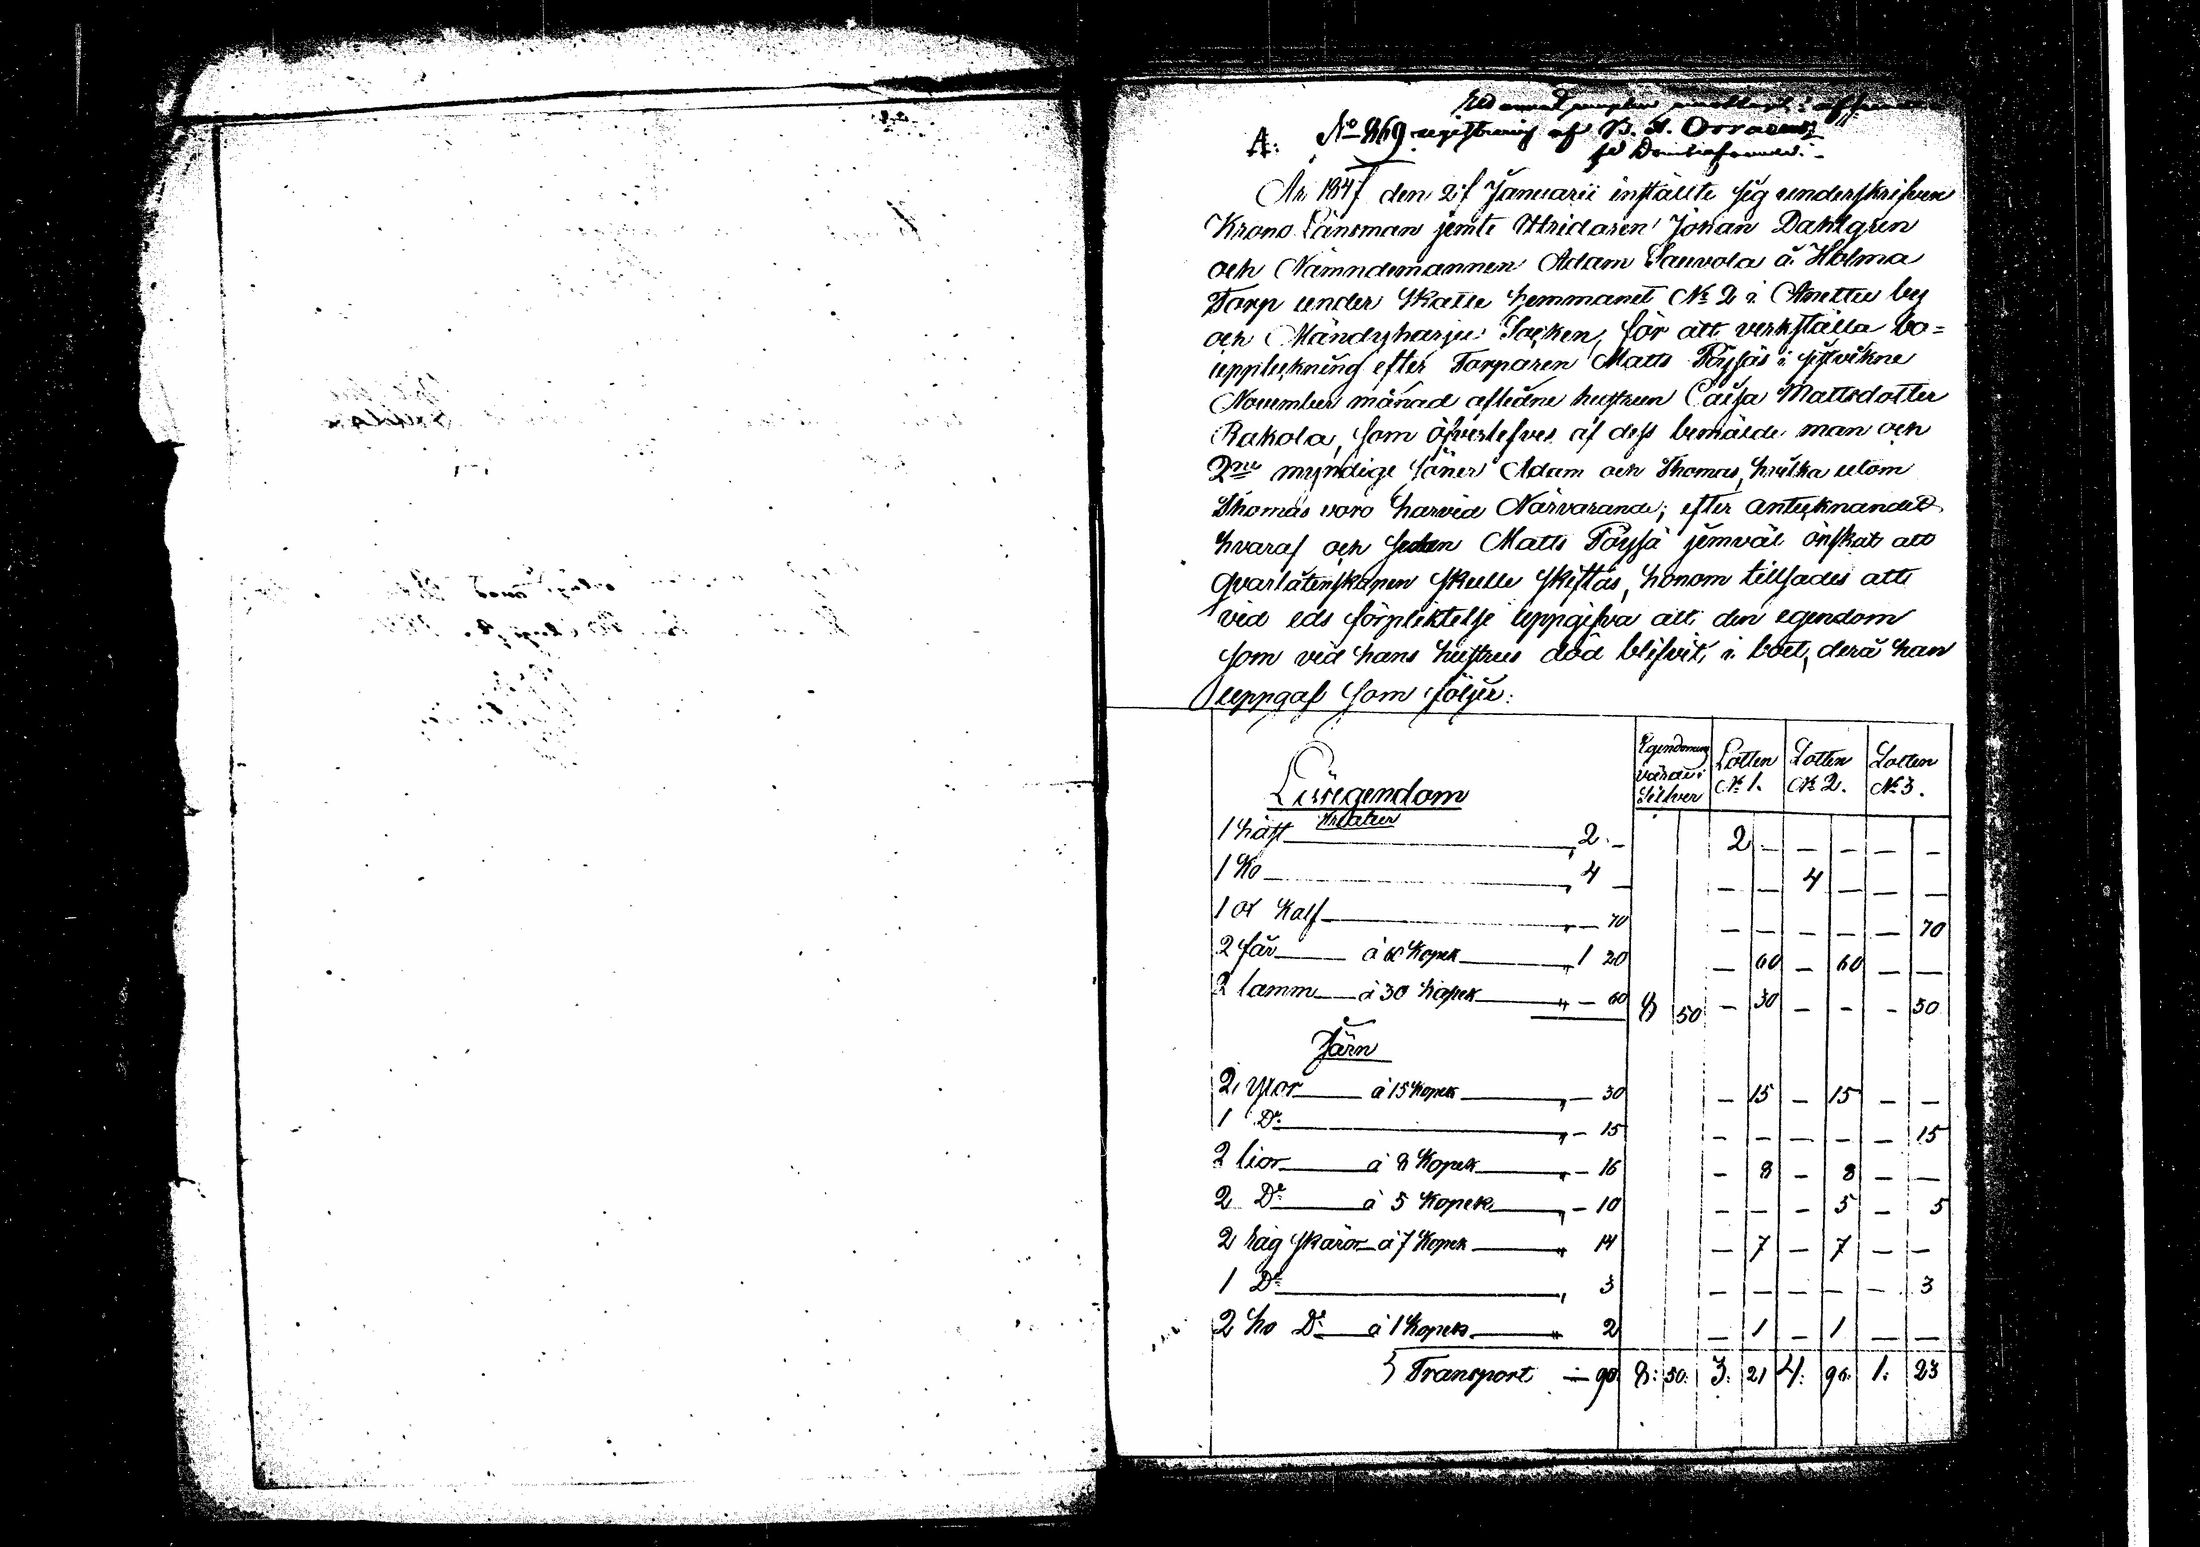 A: No 869 registrering af
År 1847 den 2 Januarii instälte sig underskrifven
Krono Länsman jemte Utridaren Johan Dahlgren
och Nämndemannen Adam Sauvola å Holma
Torp under Skatte hemmanet No 2 i Anettu by
och Mändyharju Socken, för att verkställa bo=
uppteckning efter Torparen Matts Töysäs i sistvikne
November månad aflidne hustrun Caisa Mattsdotter
Rakola, som öfverlefves af dess bemälde man och
2ne myndige söner Adam och Thomas, hvilka utom
Thomas voro härvid Närvarande; efter antecknandet
hvaraf och sedan Matts Töysä jemväl önskat att
qvarlåtenskapen skulle skiftas, honom tillsades att
vid eds förpliktelse uppgifva all den egendom
som vid hans hustrus död blifvit i boet, derå han
uppgaf som följer:
Lösegendom
Kreatur
Egendomens värde i Silfver
Lotten No 1.
Lotten No 2.
Lotten No 3.
1 häst 2 — 2 — — — — —
1 Ko " 4 — — — 4 — — —
1 ox kalf " — 70 — — — — — 70
2 får à 60 Kopek " 1 20 — 60 — 60 — —
2 lamm à 30 Kopek " — 60 8 50 — 30 — — — 30
Järn
2 yxor à 15 Kopek " — 30 — 15 — 15 — —
1 Do " — 15 — — — — — 15
2 lior à 8 Kopek " — 16 — 8 — 8 — —
2 Do à 5 Kopek " — 10 — — — 5 — 5
2 råg skäror à 7 Kopek " 14 — 7 — 7 — —
1 Do " 3 — — — — — 3
2 hö Do à 1 Kopek " 2 — 1 — 1 — —
Transport — 90 8: 50: 3: 21 4: 96: 1: 23